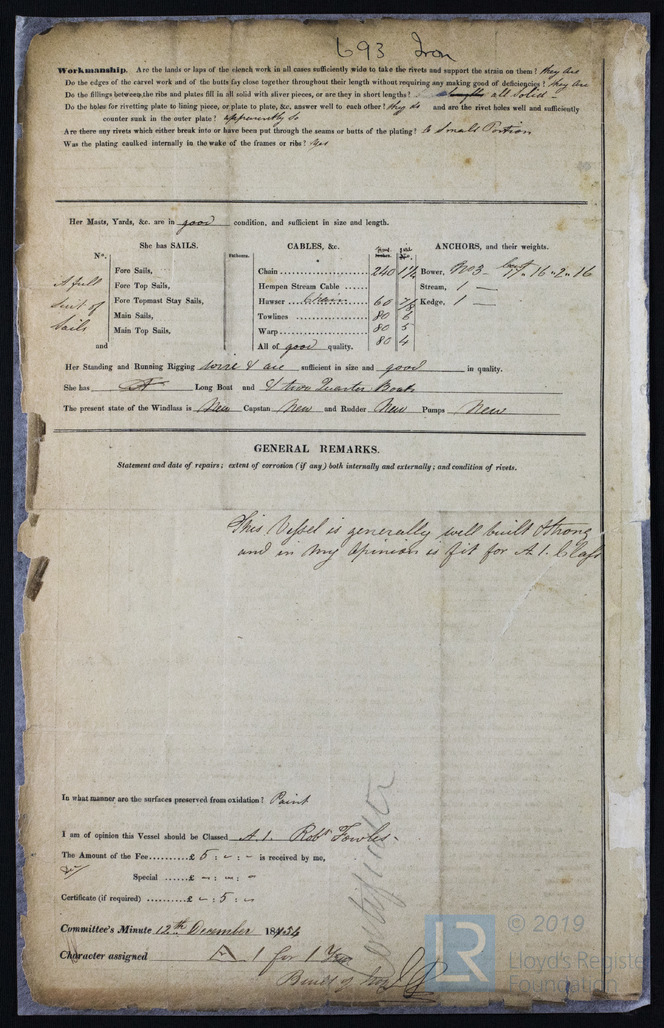 693 Iron
Workmanship. Are the lands or laps of the clench work in all cases sufficiently wide to take the rivets and support the strain on them? they are
Do the edges of the carvel work and of the butts fay close together throughout their length without requiring any making good of deficiencies? they are
Do the fillings between the ribs and plates fill in all solid with sliver pieces, or are they in short lengths? all Solid
Do the holes for rivetting plate to lining piece, or plate to plate, &c. answer well to each other? they do and are the rivet holes well and sufficiently
counter sunk in the outer plate? apparently so
Are there any rivets which either break into or have been put through the seams or butts of the plating? a Small Portion
Was the plating caulked internally in the wake of the frames or ribs? Yes
Her Masts, Yards, &c. are in good condition, and sufficient in size and length.
She has SAILS. CABLES, &c. ANCHORS, and their weights.
No. Fathoms.
A full Suit of Sails
Fore Sails, Chain 240 Bower, No 3 17 . 16 . 2 . 16
Fore Top Sails, Hempen Stream Cable Stream, 1 —
Fore Topmast Stay Sails, Hawser Chain 60 7/8 Kedge, 1 —
Main Sails, Towlines 80 6
Main Top Sails, Warp 80 5
and All of good quality. 80 4
Her Standing and Running Rigging wire & are sufficient in size and good in quality.
She has A Long Boat and & two Quarter Boats
The present state of the Windlass is New Capstan New and Rudder New Pumps New
GENERAL REMARKS.
Statement and date of repairs; extent of corrosion (if any) both internally and externally; and condition of rivets.
This Vessel is generally well built & Strong
and in my Opinion is fit for A.1. Class
In what manner are the surfaces preserved from oxidation? Paint
I am of opinion this Vessel should be Classed A.1. Robt Fowles
The Amount of the Fee.........£ 5 : - : - is received by me,
Special ......£ - : - : -
Certificate (if required) ......£ - : 5 : -
Certificate
Committee's Minute 12th December 1854
Character assigned A 1 for 1 Year
Built of Iron
LR
© 2019
Lloyd's Registe
Foundation